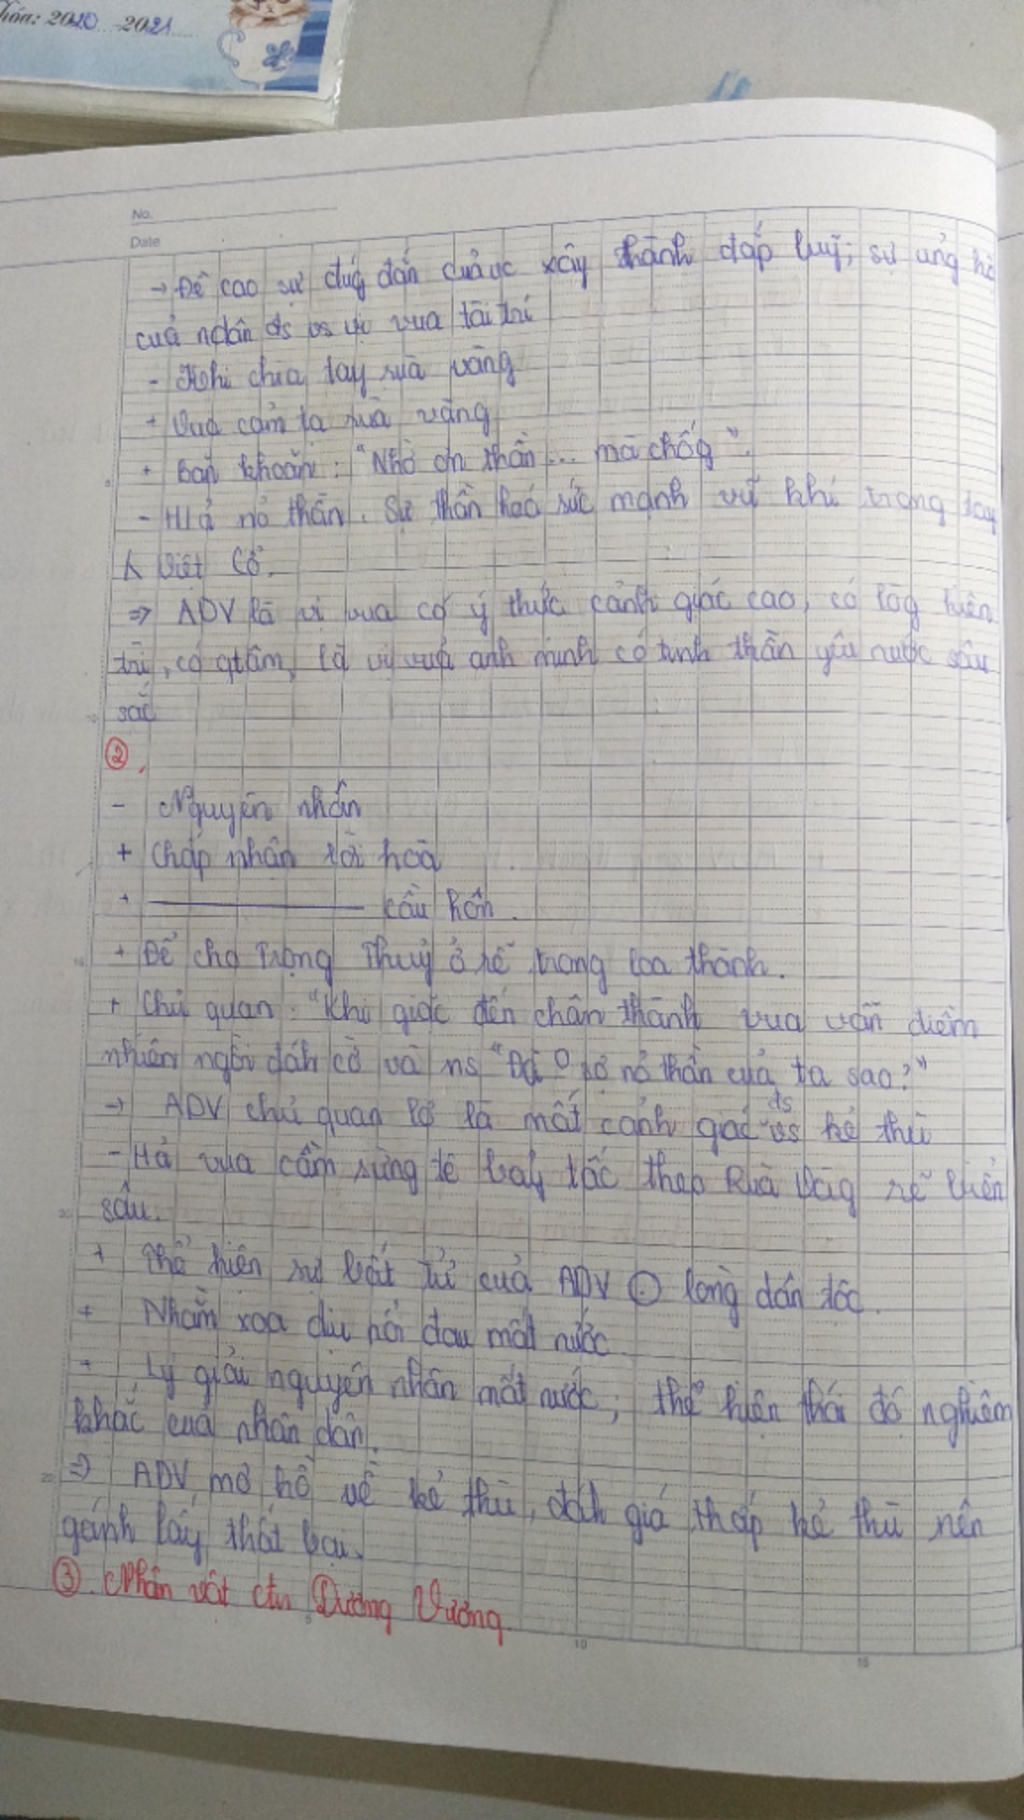 hóa: 2020 -2021
No.
Date
→ Đề cao sự đúg đắn của vc xây thành đắp luỹ; sự ủng hộ
của ndân đs vs vị vua tài trí
- Khi chia tay rùa vàng
+ Vua cảm tạ rùa vàng
+ Băn khoăn: "Nhờ ơn thần... mà chốg".
- H/ả nỏ thần. Sự thần hoá sức mạnh vũ khí trong tay
Việt Cổ.
⇒ ADV là vị vua có ý thức cảnh giác cao, có lòg kiên
trì, có qtâm, là vị vua anh minh có tinh thần yêu nước sâu
sắc
②.
- Nguyên nhân
+ Chấp nhận lời hoà
+ ———— cầu hôn.
+ Để cho Trọng Thuỷ ở rể trong Loa thành.
+ Chủ quan: "Khi giặc đến chân thành vua vẫn điềm
nhiên ngồi đáh cờ và ns "Đà 0 sợ nỏ thần của ta sao?"
→ ADV chủ quan lơ là mất cảnh giác đs vs kẻ thù
- H/ả vua cầm sừng tê bảy tấc theo Rùa Vàg rẽ biển
sâu.
+ Thể hiện sự bất tử của ADV lòng dân tộc.
+ Nhằm xoa dịu nỗi đau mất nước
+ Lý giải nguyên nhân mất nước, thể hiện thái độ nghiêm
khắc của nhân dân.
⇒ ADV mơ hồ về kẻ thù, đáh giá thấp kẻ thù nên
gánh lấy thất bại.
③. Nhân vật An Dương Vương
5 10 15